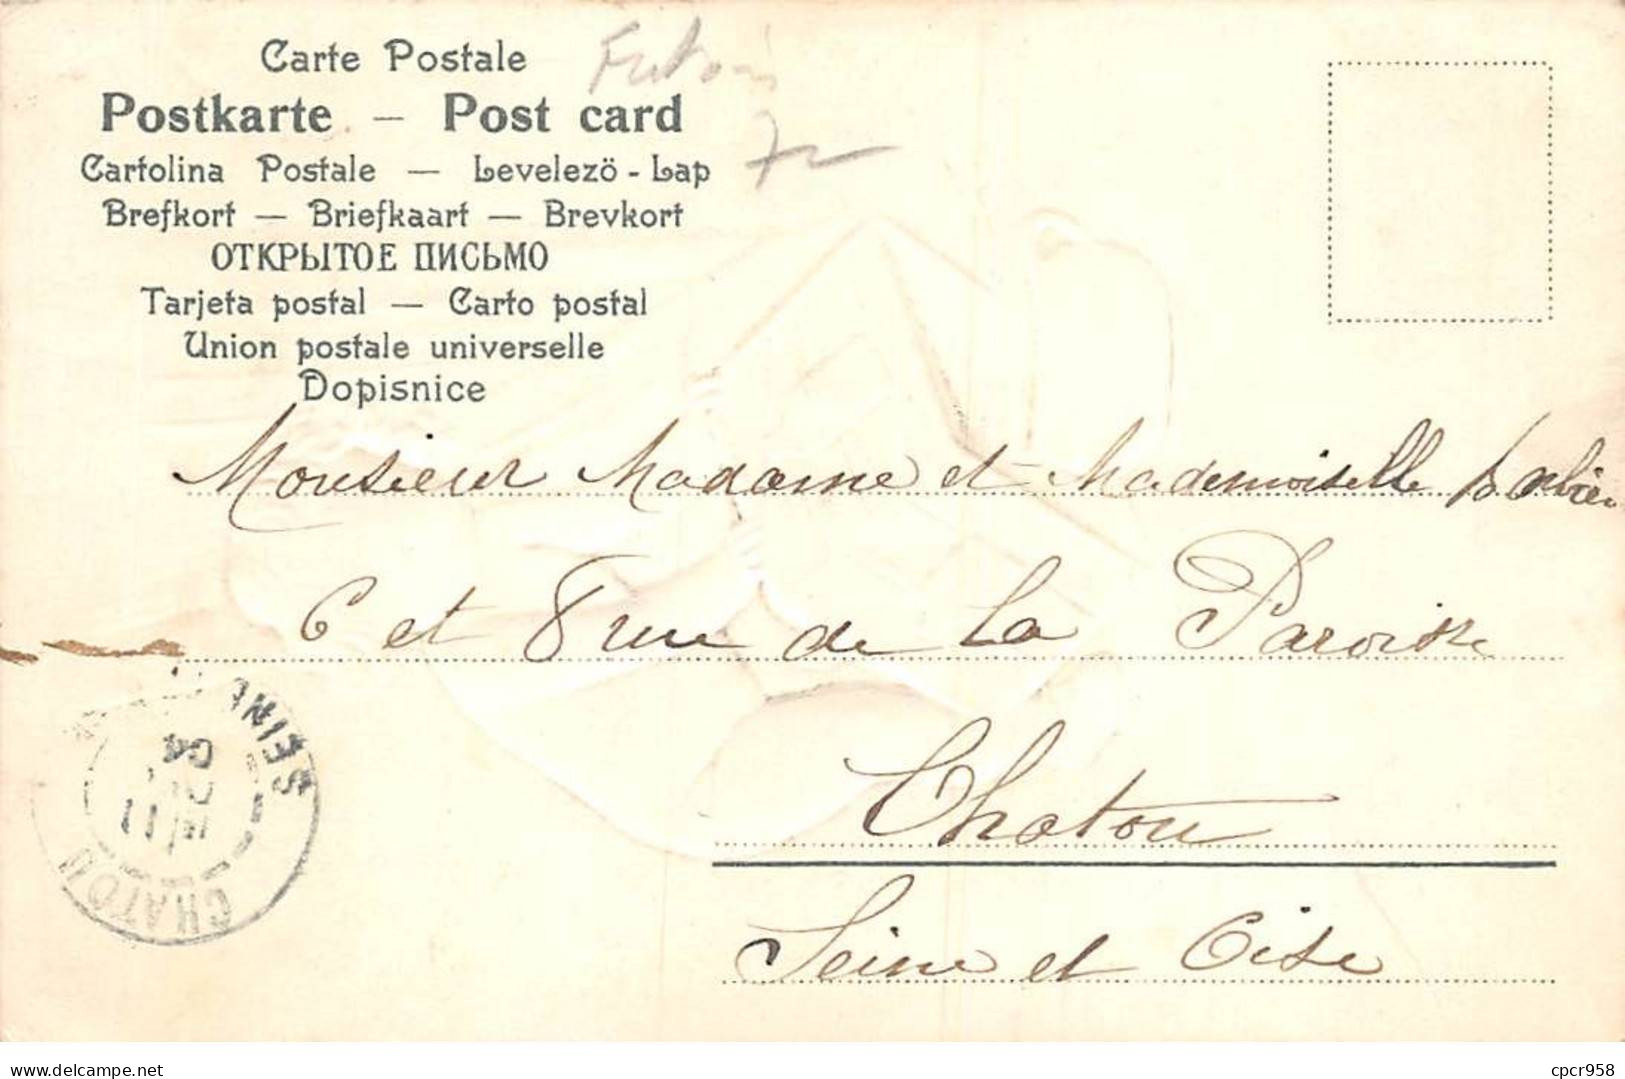 Carte Postale
Postkarte — Post card
Cartolina Postale — Levelezö - Lap
Brefkort — Briefkaart — Brevkort
ОТКРЫТОЕ ПИСЬМО
Tarjeta postal — Carto postal
Union postale universelle
Dopisnice
72
Monsieur Madame et Mademoiselle Barbier
6 et 8 rue de La Paroisse
Chatou
Seine et Oise
SEINE
CHATOU
11
04
www.delcampe.net
cpcr958